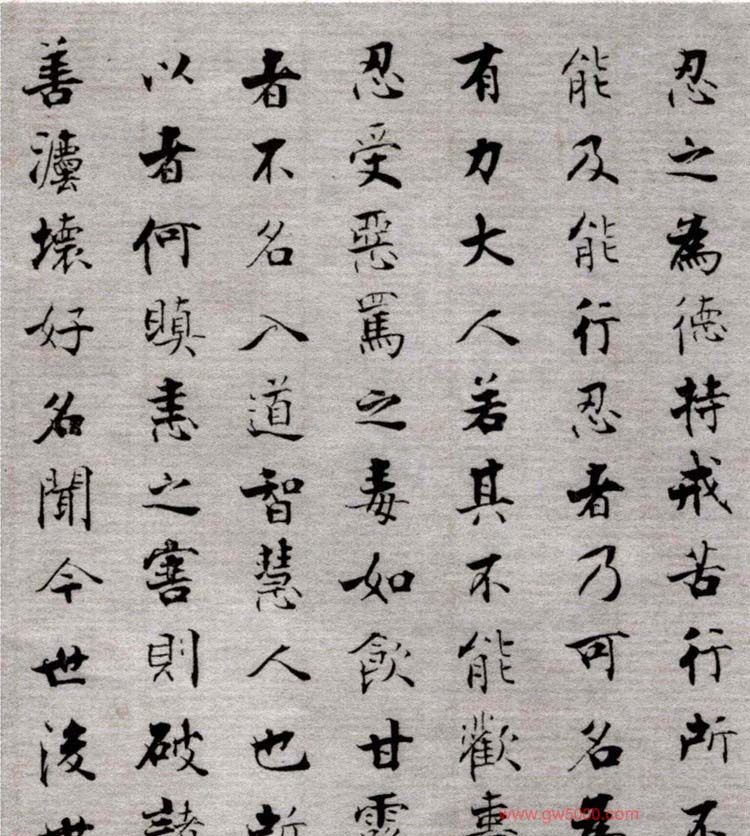 忍之為德持戒苦行所不
能及能行忍者乃可名為
有力大人若其不能歡喜
忍受惡罵之毒如飲甘露
者不名入道智慧人也所
以者何瞋恚之害則破諸
善灋壞好名聞今世後世